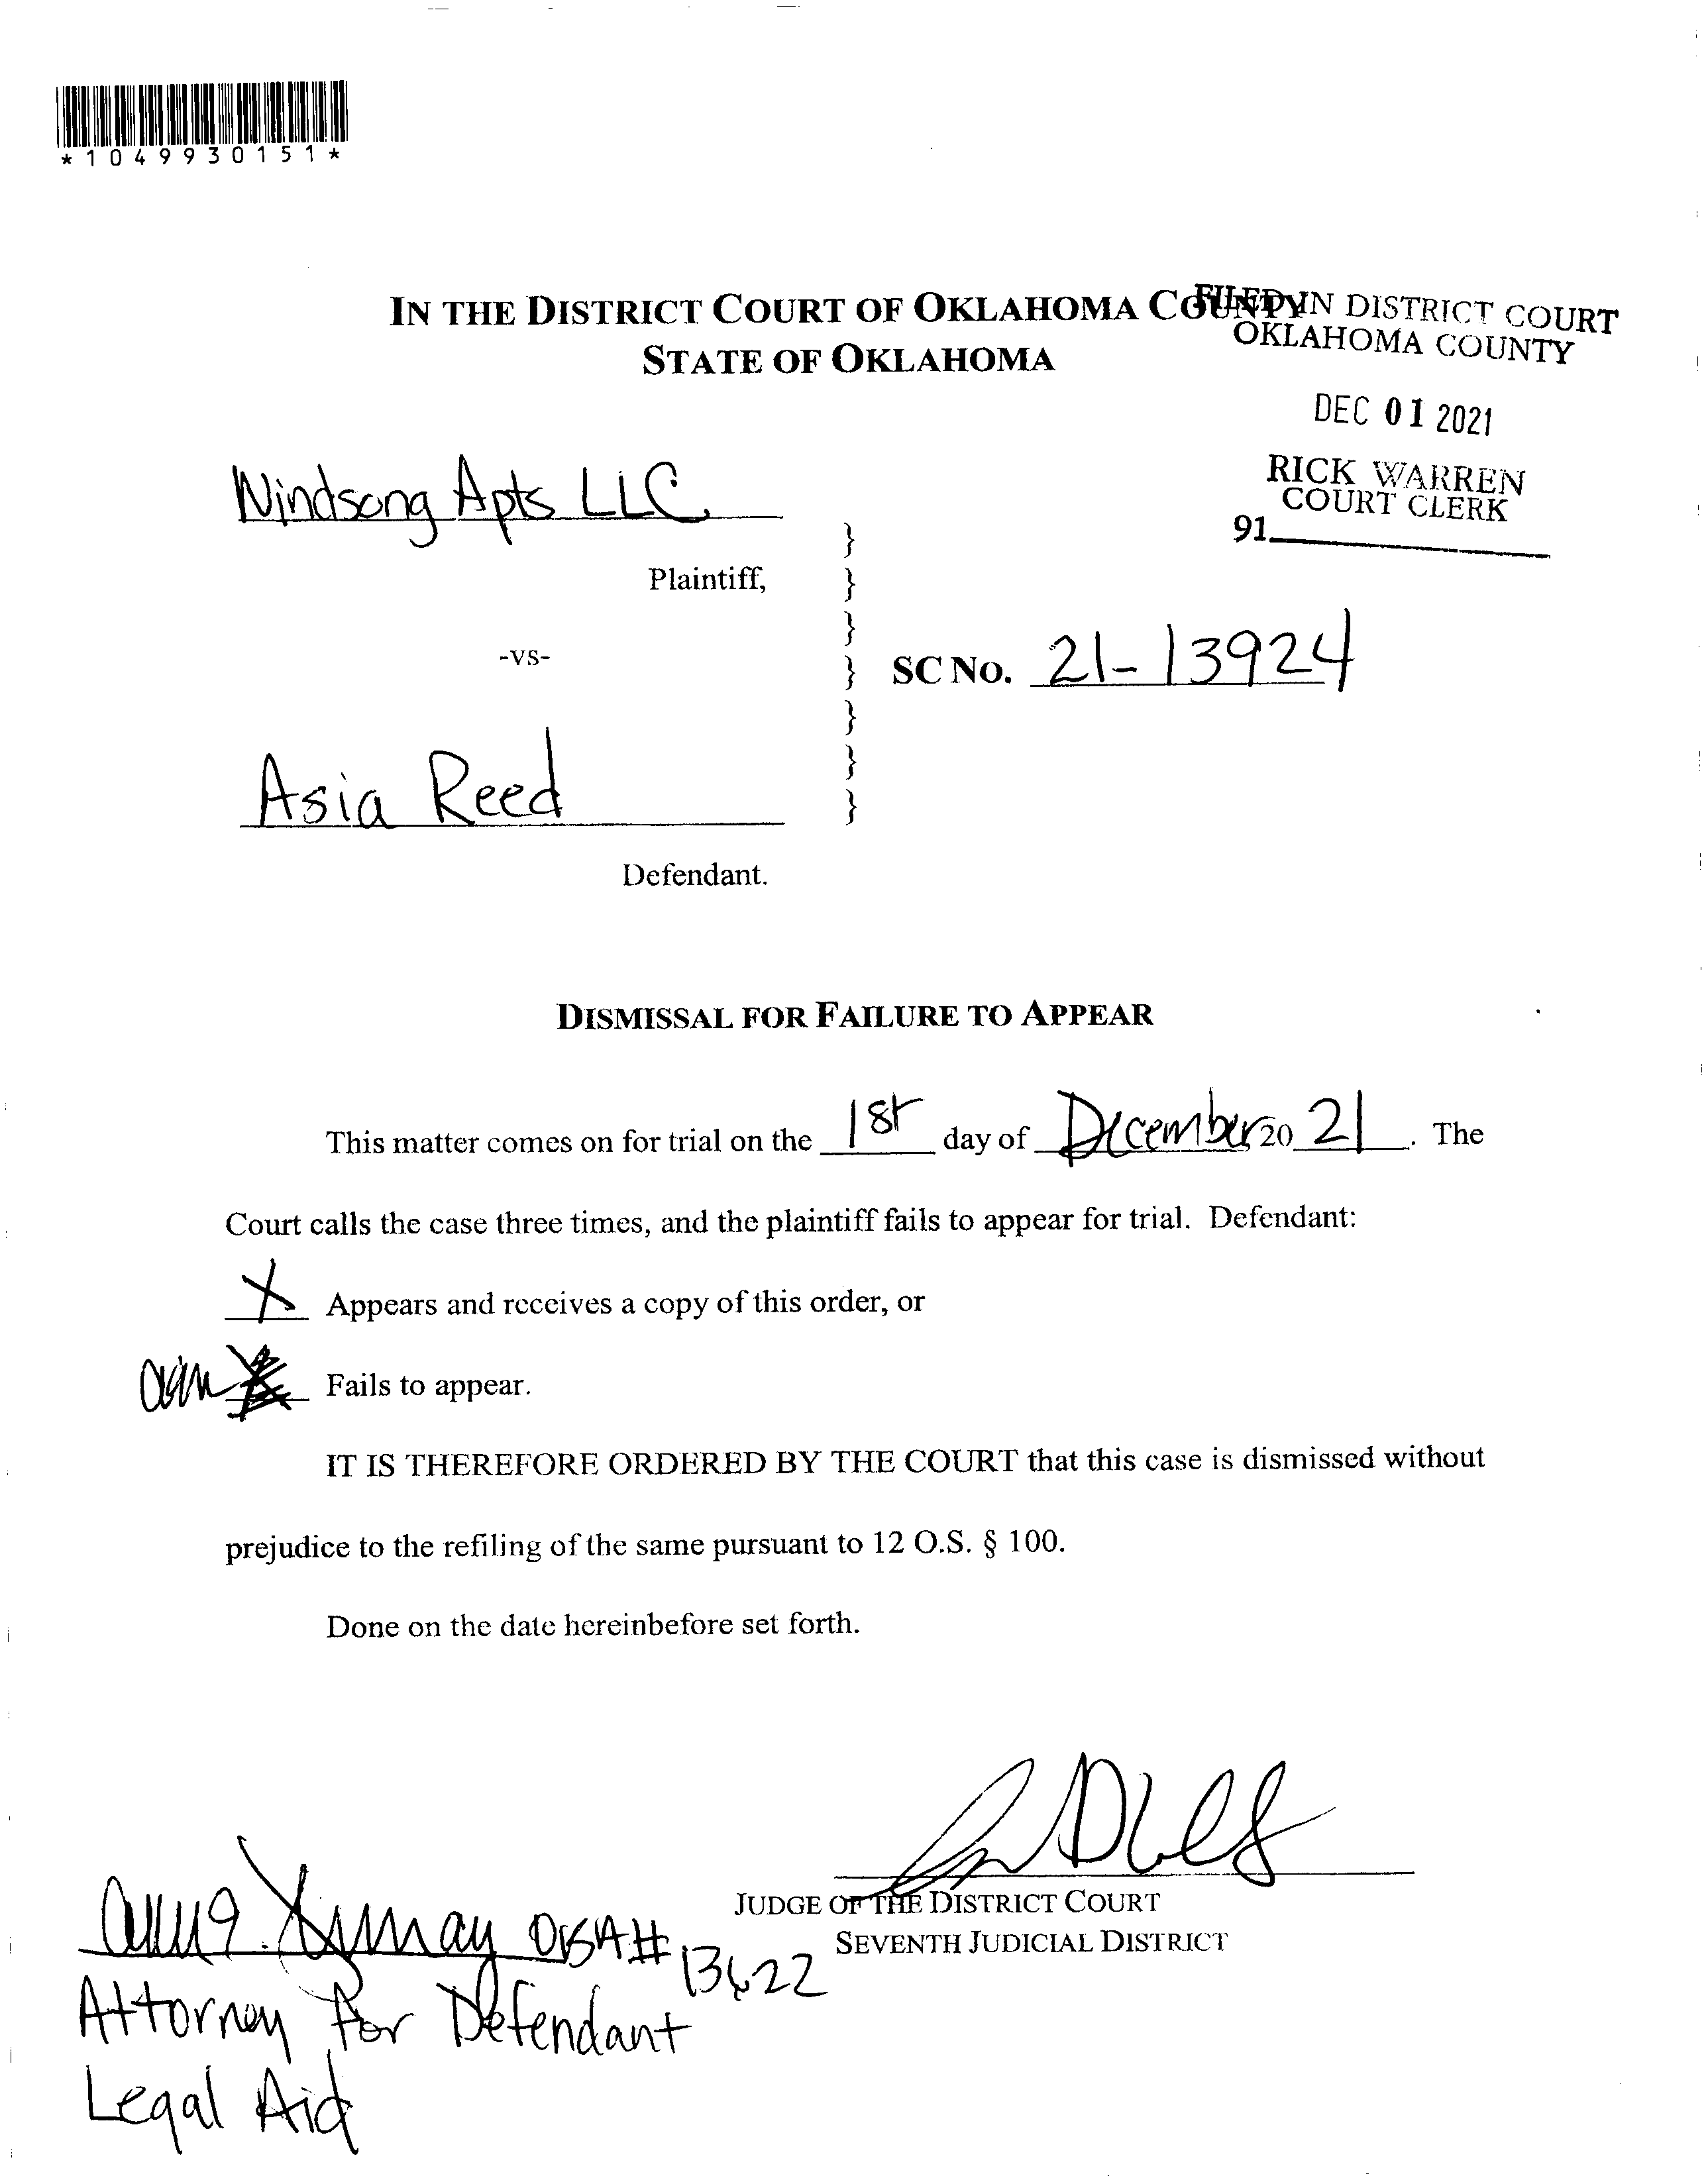 *1049930151*
IN THE DISTRICT COURT OF OKLAHOMA COUNTY
STATE OF OKLAHOMA
FILED IN DISTRICT COURT
OKLAHOMA COUNTY
DEC 01 2021
RICK WARREN
COURT CLERK
91
Windsong Apts LLC
Plaintiff,
-vs-
SC No. 21-13924
Asia Reed
Defendant.
DISMISSAL FOR FAILURE TO APPEAR
This matter comes on for trial on the 1st day of December 20 21. The
Court calls the case three times, and the plaintiff fails to appear for trial. Defendant:
X Appears and receives a copy of this order, or
Fails to appear.
IT IS THEREFORE ORDERED BY THE COURT that this case is dismissed without
prejudice to the refiling of the same pursuant to 12 O.S. § 100.
Done on the date hereinbefore set forth.
JUDGE OF THE DISTRICT COURT
SEVENTH JUDICIAL DISTRICT
OBA# 13622
Attorney for Defendant
Legal Aid